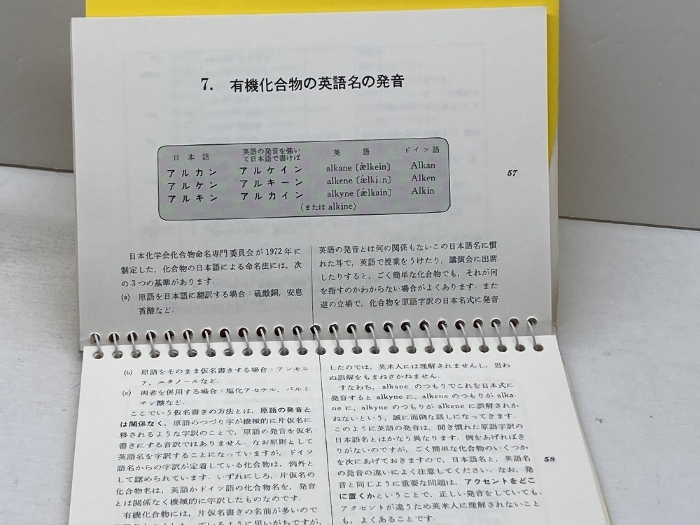 7. 有機化合物の英語名の発音
日本語 英語の発音を強いて日本語で書けば 英語 ドイツ語
アルカン アルケイン alkane [ǽlkein] Alkan
アルケン アルキーン alkene [ǽlki:n] Alken
アルキン アルカイン alkyne [ǽlkain] Alkin
(または alkine)
57
日本化学会化合物命名専門委員会が1972年に
制定した,化合物の日本語による命名法には,次
の3つの基準があります.
(a) 原語を日本語に翻訳する場合:硫酸銅,安息
香酸など.
英語の発音とは何の関係もないこの日本名に慣
れた耳で,英語で授業をうけたり,講演会に出席
したりすると,ごく簡単な化合物でも,それが何
を指すのかわからない場合がよくあります.また
逆の立場で,化合物を原語字訳の日本名式に発音
(b) 原語をそのまま仮名書きする場合:アンモニ
ア,エタノールなど.
(c) 両者を併用する場合:塩化アセチル,パルミ
チン酸など.
ここでいう仮名書きの方法とは,原語の発音と
は関係なく,原語のつづり字が機械的に片仮名に
移されるような字訳のことで,原語の発音を仮名
書きにする音訳ではありません.なお原則として
英語名を字訳することになっていますが,ドイツ
語名からの字訳が定着している化合物は,例外と
して認められています.いずれにしろ,片仮名の
化合物名は,英語かドイツ語の化合物名を,発音
とは関係なく機械的に字訳したものなのです.
有機化合物には,片仮名書きの名前が多いので
したのでは,英米人には理解されませんし,思わ
ぬ誤解をもまねきかねません.
すなわち,alkane のつもりでこれを日本式に
発音すると alkyne に,alkene のつもりが alka-
ne に,alkyne のつもりが alkene に誤解されか
ねないという,誠に面倒な話しになってきます.
このように英語の発音は,聞き慣れた原語字訳の
日本語名とはかなり異なります.例をあげればき
りがないのですが,ごく簡単な化合物のいくつか
を次にあげておきますので,日本語名と,英語名
の発音の違いによく注意してください.なお,発
音と同じように重要な問題は,アクセントをどこ
に置くかということで,正しい発音をしていても,
アクセントが違うため英米人に理解されないこと
も,よくあることです.
58